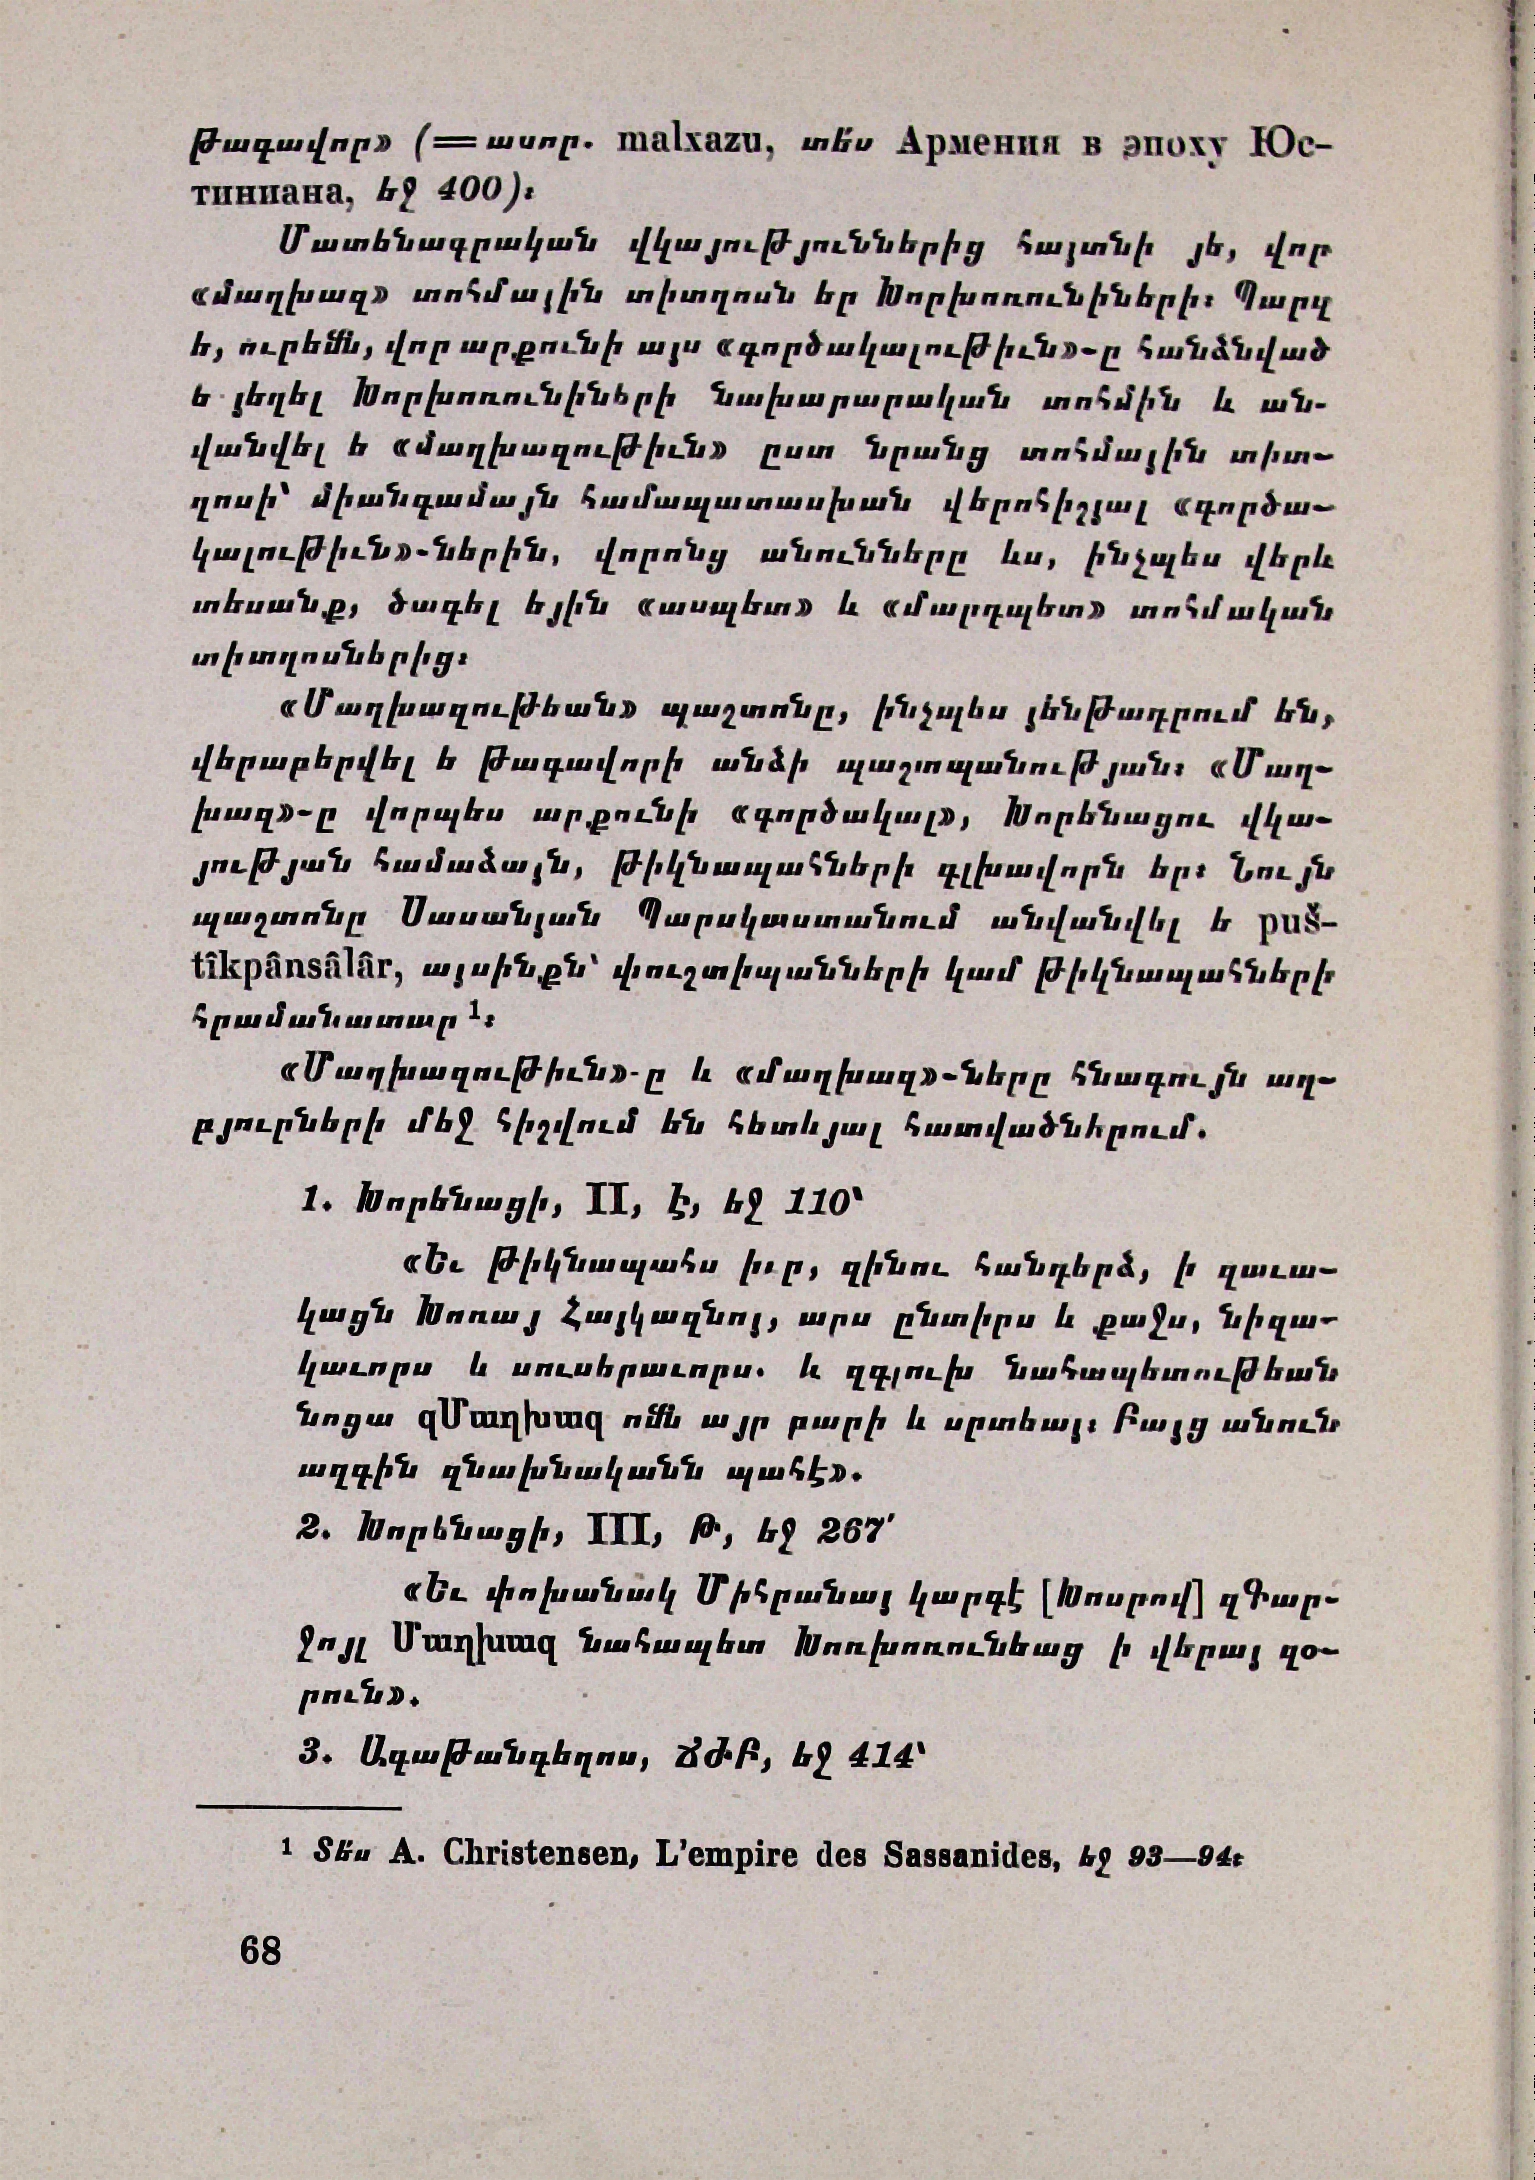 թագավոր» (=ասոր. malxazu, տե՛ս Армения в эпоху Юс-
тиниана, եջ 400)։
Մատենագրական վկայություններից հայտնի յե, վոր
«մաղխազ» տոհմային տիտղոսն եր Խորխոռունիների։ Պարզ
ե, ուրեմն, վոր արքունի այս «գործակալութիւն»-ը հանձնված
ե յեղել Խորխոռունիների նախարարական տոհմին և ան-
վանվել ե «մաղխազութիւն» ըստ նրանց տոհմային տիտ-
ղոսի՝ միանգամայն համապատասխան վերոհիշյալ «գործա-
կալութիւն»-ներին, վորոնց անունները ևս, ինչպես վերև
տեսանք, ծագել եյին «ասպետ» և «մարդպետ» տոհմական
տիտղոսներից։
«Մաղխազութեան» պաշտոնը, ինչպես յենթադրում են,
վերաբերվել ե թագավորի անձի պաշտպանության։ «Մաղ-
խազ»-ը վորպես արքունի «գործակալ», Խորենացու վկա-
յության համաձայն, թիկնապահների գլխավորն եր։ Նույն
պաշտոնը Սասանյան Պարսկաստանում անվանվել ե puš-
tîkpânsâlâr, այսինքն՝ փուշտիպանների կամ թիկնապահների
հրամանատար ¹։
«Մաղխազութիւն»-ը և «մաղխազ»-ները հնագույն աղ-
բյուրների մեջ հիշվում են հետևյալ հատվածներում.
1. Խորենացի, II, է, եջ 110՝
«Եւ թիկնապահս իւր, զինու հանդերձ, ի զաւա-
կացն Խոռայ Հայկազնոյ, արս ընտիրս և քաջս, նիզա-
կաւորս և սուսերաւորս. և զգլուխ նահապետութեան
նոցա զՄաղխազ ոմն այր բարի և սրտեայ։ Բայց անուն
ազգին զնախնականն պահէ».
2. Խորենացի, III, թ, եջ 267՛
«Եւ փոխանակ Միհրանայ կարգէ [Խոսրով] զԳար-
ջոյլ Մաղխազ նահապետ Խոռխոռունեաց ի վերայ զօ-
րուն».
3. Ագաթանգեղոս, ՃԺԲ, եջ 414՝
¹ Տե՛ս A. Christensen, L'empire des Sassanides, եջ 93—94։
68